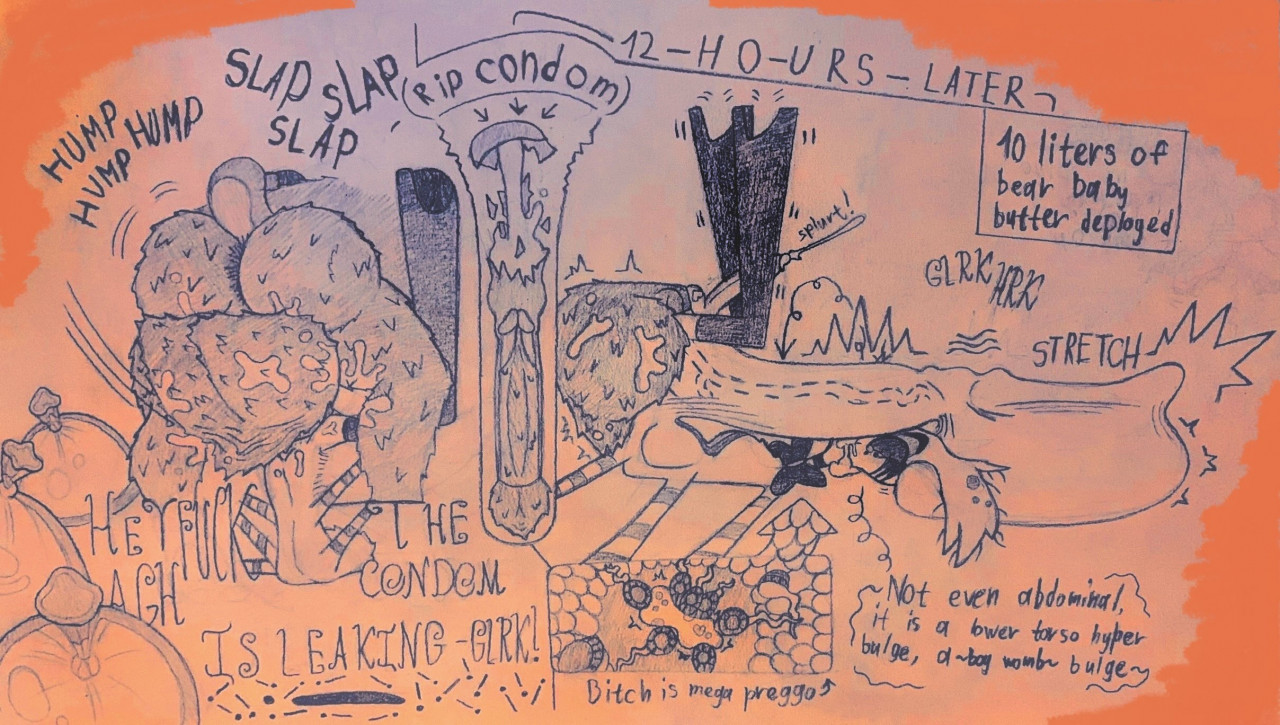 HUMP
HUMP
HUMP
SLAP
SLAP
SLAP
(Rip condom)
12-HOURS-LATER
10 liters of
bear baby
butter deployed
splurt!
GLRK
HRK
STRETCH
HEY FUCK THE
AGH CONDOM
IS LEAKING -GLRK!
~Not even abdominal,
it is a lower torso hyper
bulge, a~bog womb~ bulge~
Bitch is mega preggo